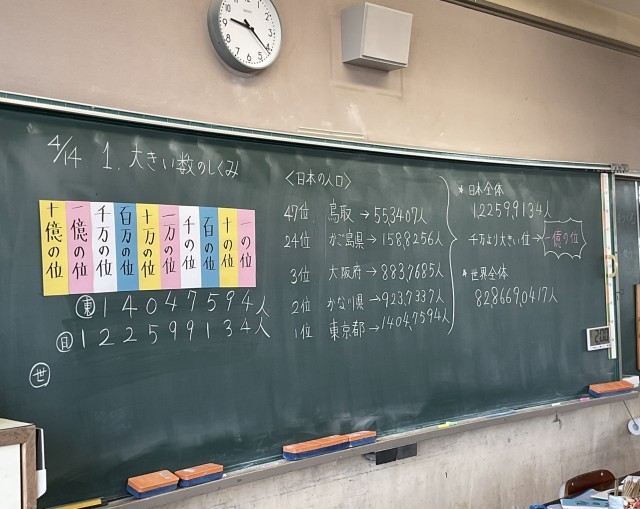 4/14 1. 大きい数のしくみ
十億の位 一億の位 千万の位 百万の位 十万の位 一万の位 千の位 百の位 十の位 一の位
東 14047594人
日 122599134人
世
〈日本の人口〉
47位 鳥取→55,3407人
24位 かご島県→158,8256人
3位 大阪府→883,7685人
2位 かな川県→923,7337人
1位 東京都→1404,7594人
* 日本全体
1,2259,9134人
千万より大きい位→一億の位
* 世界全体
82,8669,0417人